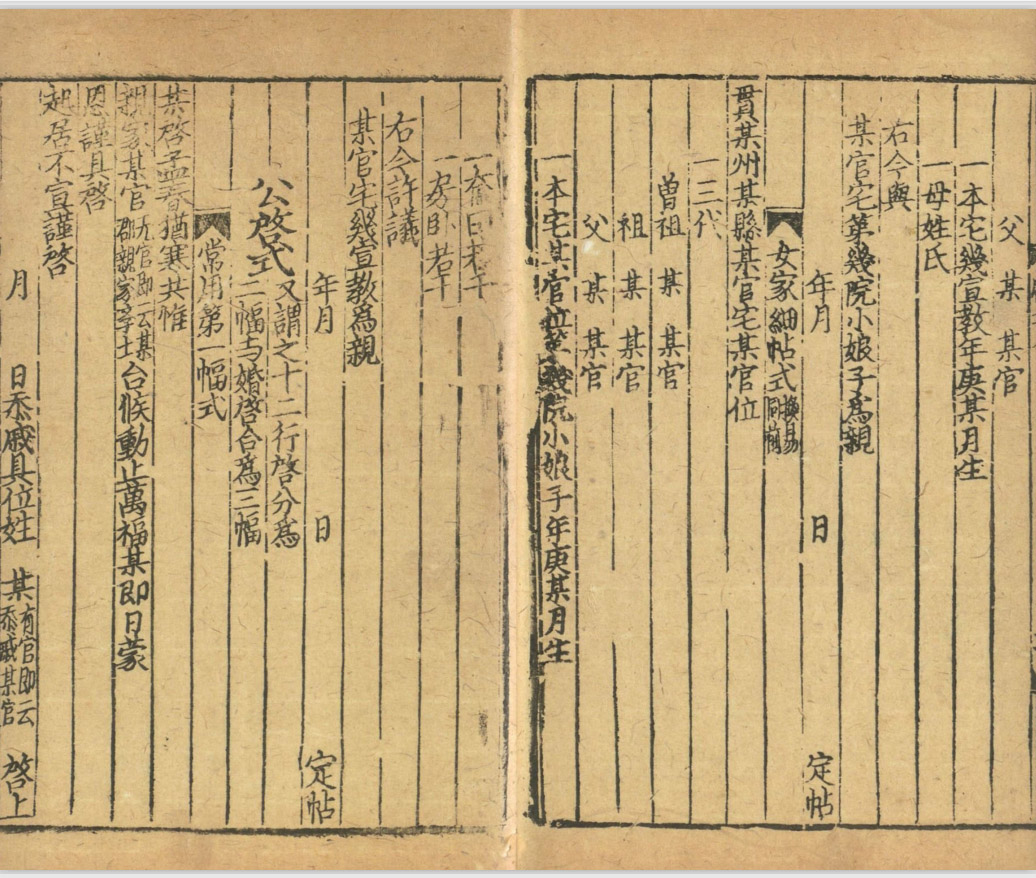 父 某 某官
一本宅幾宣教年庚某月生
一母姓氏
右今與
某官宅第幾院小娘子為親
年月 日 定帖
女家細帖式換易同前
貫某州某縣某官宅某官位
一三代
曽祖 某 某官
祖 某 某官
父 某 某官
一本宅某官位第幾院小娘子年庚某月生
一奩田若干
一房卧若干
右今許議
某官宅幾宣教為親
年月 日 定帖
公啓式又謂之十二行啓分為
二幅与婚啓合為三幅
常用第一幅式
某啓孟春猶寒共惟
親家某官尤官即云某郡親家学士台候動止萬福某即日蒙
恩謹具啓
起居不宣謹啓
月 日忝戚具位姓 某有官即云忝戚某官 啓上